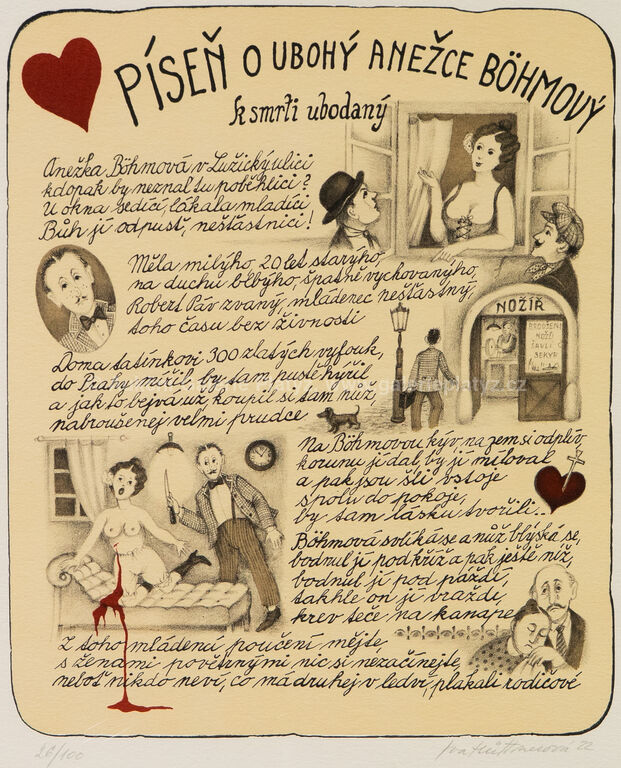 PÍSEŇ O UBOHÝ ANEŽCE BÖHMOVÝ
k smrti ubodaný
Anežka Böhmová v Lužický ulici
kdopak by neznal tu poběhlici?
U okna sedíci, lákala mladíci
Bůh jí odpusť, nešťastnici!
Měla milýho, 20 let starýho,
na duchu blbýho, špatně vychovanýho,
Robert Pár zvaný, mládenec nešťastný,
toho času bez živnosti
NOŽÍŘ
BROUŠENÍ
NOŽŮ
ŠAVLÍ
SEKYR
Doma tatínkovi 300 zlatých vyfouk,
do Prahy mířil, by tam pustě hýřil
a jak to bejvá už, koupil si tam nůž,
nabroušenej velmi prudce
Na Böhmovou kýv, na zem si odpliv,
korunu jí dal, by jí miloval
a pak jsou šli vstoje
spolu do pokoje,
by tam lásku tvořili...
Böhmová svlíká se a nůž blýská se,
bodnul jí pod kříž a pak ještě níž,
bodnul jí pod páždí,
takhle on jí vraždí,
krev teče na kanape
Z toho mládenci poučení mějte,
s ženami povětrnými nic si nezačínejte,
neboť nikdo neví, co má druhej v ledví, plakali rodičové
26/100